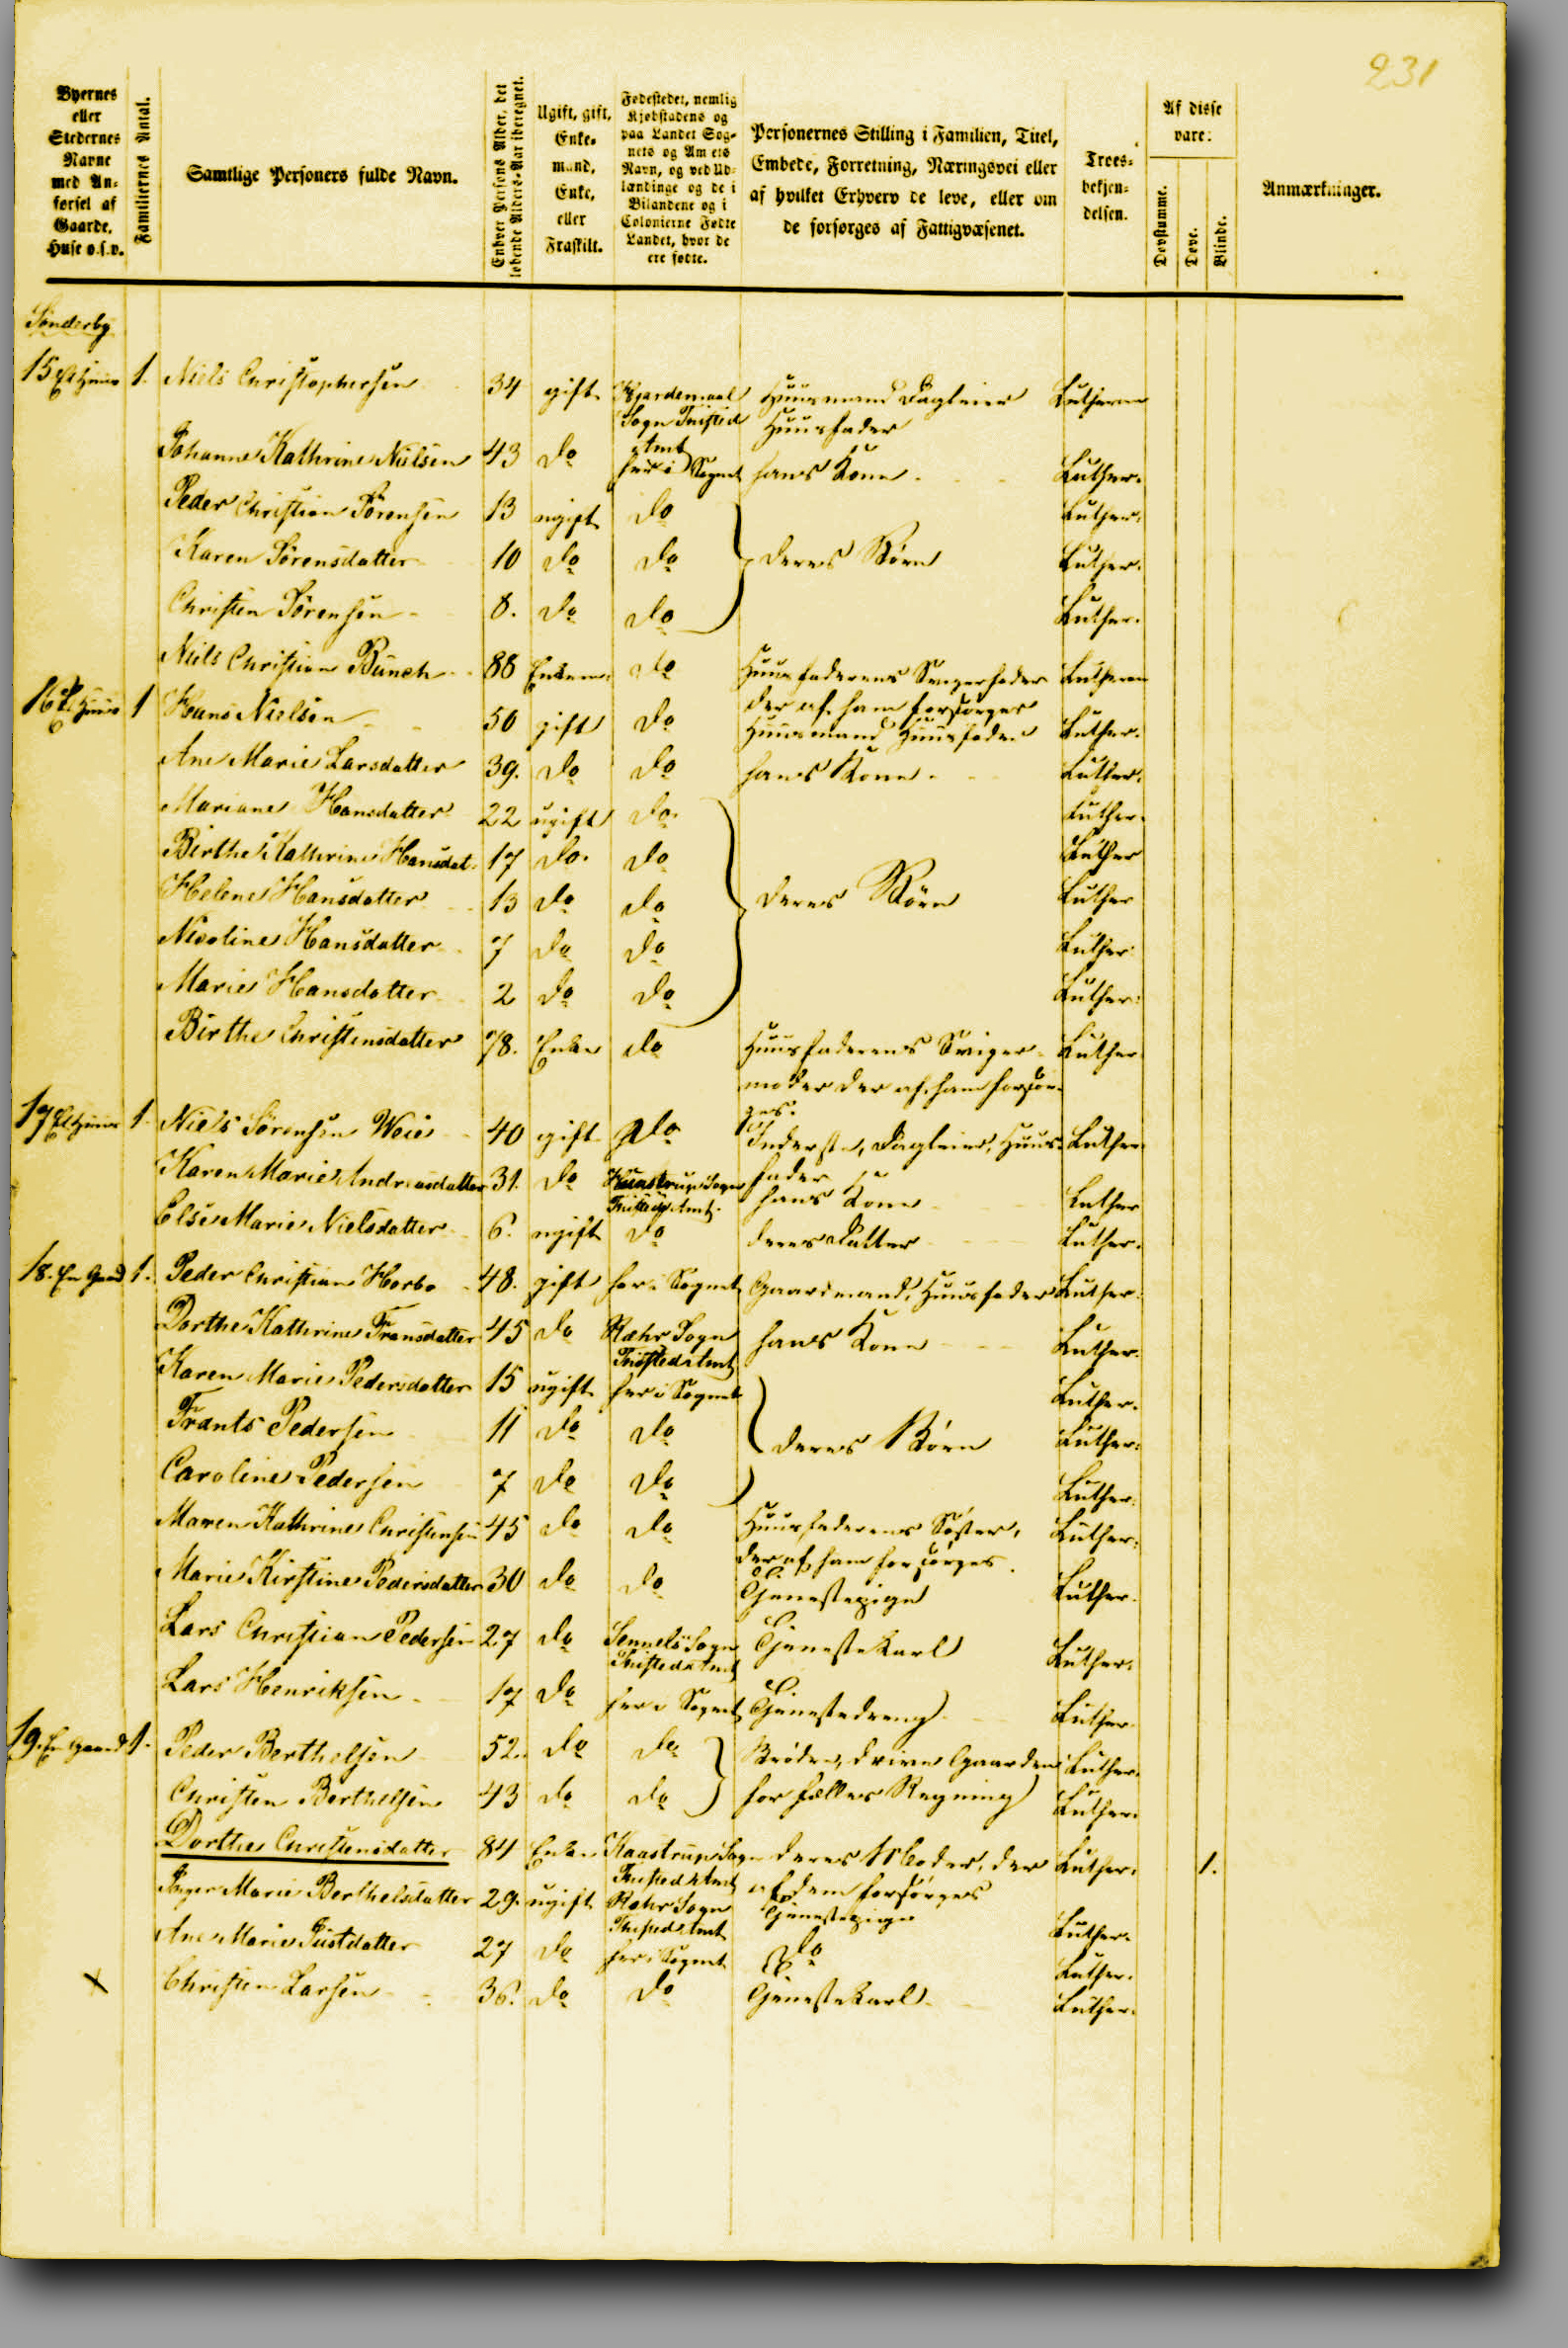 231
Byernes eller Stedernes Navne med Anførsel af Gaarde, Huse o.s.v.
Familiernes Antal.
Samtlige Personers fulde Navn.
Enhver Persons Alder, det løbende Alders-Aar iberegnet.
Ugift, gift, Enkemand, Enke, eller Fraskilt.
Fødestedet, nemlig Kjøbstadens og paa Landet Sognets og Amtets Navn, og ved Udlændinge og de i Bilandene og i Colonierne Fødte Landet, hvor de ere fødte.
Personernes Stilling i Familien, Titel, Embede, Forretning, Næringsvei eller af hvilket Erhverv de leve, eller om de forsørges af Fattigvæsenet.
Troesbekjendelsen.
Af disse vare:
Døvstumme.
Døve.
Blinde.
Anmærkninger.
Sønderby
15 Et Huus 1. Niels Christophersen 34 gift Hjardemaal Huusmand Dagleier Lutheran
Sogn Thisted Huusfader
Amt
Johanne Kathrine Nielsen 43 do her i Sognet hans Kone Luther.
Peder Christian Sørensen 13 ugift do Luther.
Karen Sørensdatter 10 do do deres Børn Luther.
Christen Sørensen 8. do do Luther.
Niels Christian Bunch 88 Enkem. do Huusfaderens Svigerfader Lutheran
der af ham forsørges
16 Et Huus 1 Hans Nielsen 50 gift do Huusmand Huusfader Luther.
Ane Marie Larsdatter 39. do do hans Kone Luther.
Mariane Hansdatter 22 ugift do. Luther.
Birthe Kathrine Hansdat. 17 do. do Luther
Helene Hansdatter 13 do do deres Børn Luther
Nicoline Hansdatter 7 do do Luther
Marie Hansdatter 2 do do Luther.
Birthe Christensdatter 78. Enke do Huusfaderens Sviger- Luther
moder der af ham forsør-
ges.
17 Et Huus 1. Niels Sørensen Weie 40 gift do Inderste, Dagleier, Huus- Luther
fader
Karen Marie Andreasdatter 31. do Sogn hans Kone Luther
Thisted Amt.
Else Marie Nielsdatter 6. ugift do deres Datter Luther.
18. En Gaard 1. Peder Christian Horbo 48. gift her i Sognet Gaardmand, Huusfader Luther.
Dorthe Kathrine Fransdatter 45 do Ræhr Sogn hans Kone Luther.
Thisted Amt
Karen Marie Pedersdatter 15 ugift her i Sognet Luther.
Frants Pedersen 11 do do deres Børn Luther.
Caroline Pedersen 7 do do Luther.
Maren Kathrine Christensen 45 do do Huusfaderens Søster, Luther.
der af ham forsørges.
Marie Kirstine Pedersdatter 30 do do Tjenestepige Luther.
Lars Christian Pedersen 27 do Sennels Sogn Tjenestekarl Luther.
Thisted Amt
Lars Henriksen 17 do her i Sognet Tjenestedreng Luther.
19. En Gaard 1. Peder Berthelsen 52. do do Brødre, drive Gaarden Luther.
Christen Berthelsen 43 do do for fælles Regning Luther.
Dorthe Christensdatter 84 Enke Kaastrup Sogn deres Moder, der Luther. 1.
Thisted Amt af dem forsørges
Inger Marie Berthelsdatter 29. ugift Ræhr Sogn Tjenestepige Luther.
Thisted Amt
Ane Marie Justdatter 27 do her i Sognet do Luther.
x Christen Larsen 36. do do Tjenestekarl Luther.